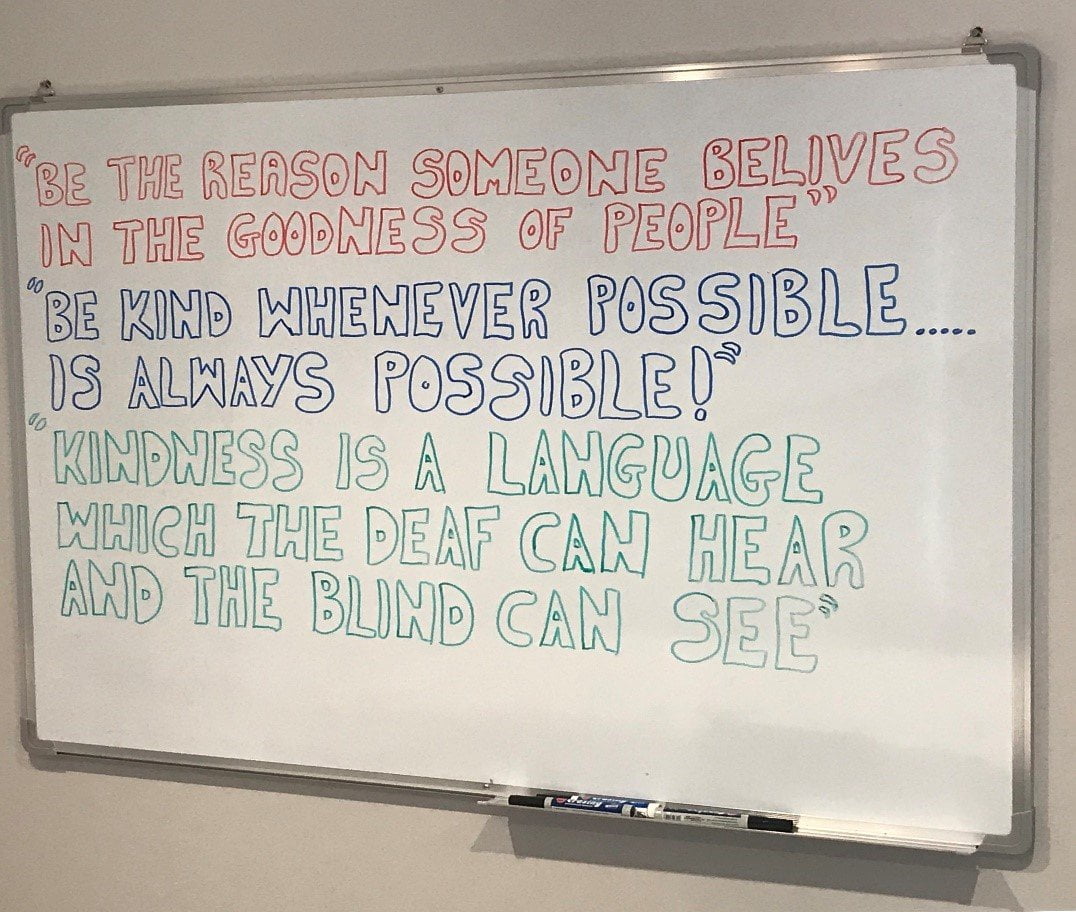 "BE THE REASON SOMEONE BELIVES
IN THE GOODNESS OF PEOPLE"
"BE KIND WHENEVER POSSIBLE.....
IS ALWAYS POSSIBLE!"
"KINDNESS IS A LANGUAGE
WHICH THE DEAF CAN HEAR
AND THE BLIND CAN SEE"